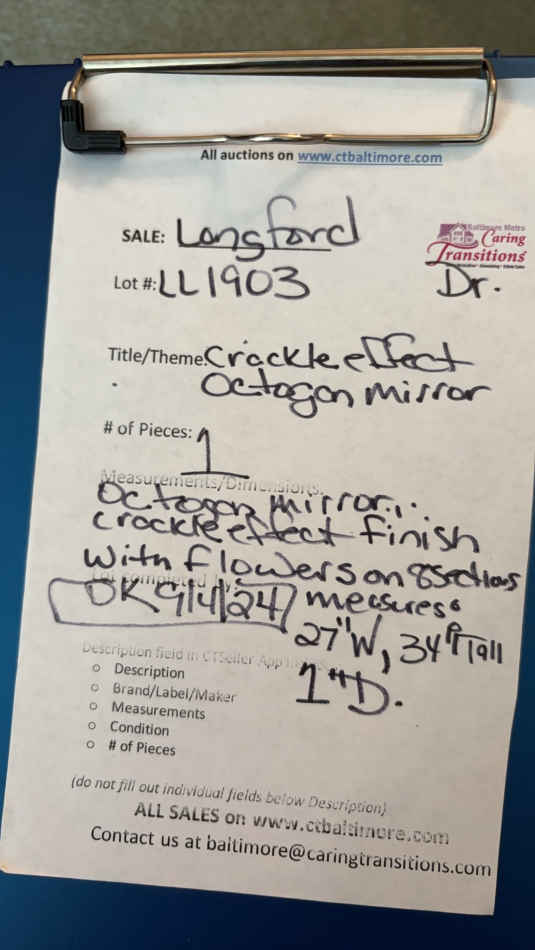 All auctions on www.ctbaltimore.com
SALE: Longford
Baltimore Metro
Caring
Transitions
Lot #: LL1903 Dr.
Title/Theme: Crackle effect
Octagon Mirror
# of Pieces: 1
Measurements/Dimensions:
Octagon mirror,
crackle effect finish
with flowers on 8 sections
Lot completed by
DK 9/4/24 measures
27"W, 34" Tall
Description field in CTSeller App
1"D.
o Description
o Brand/Label/Maker
o Measurements
o Condition
o # of Pieces
(do not fill out individual fields below Description)
ALL SALES on www.ctbaltimore.com
Contact us at baltimore@caringtransitions.com